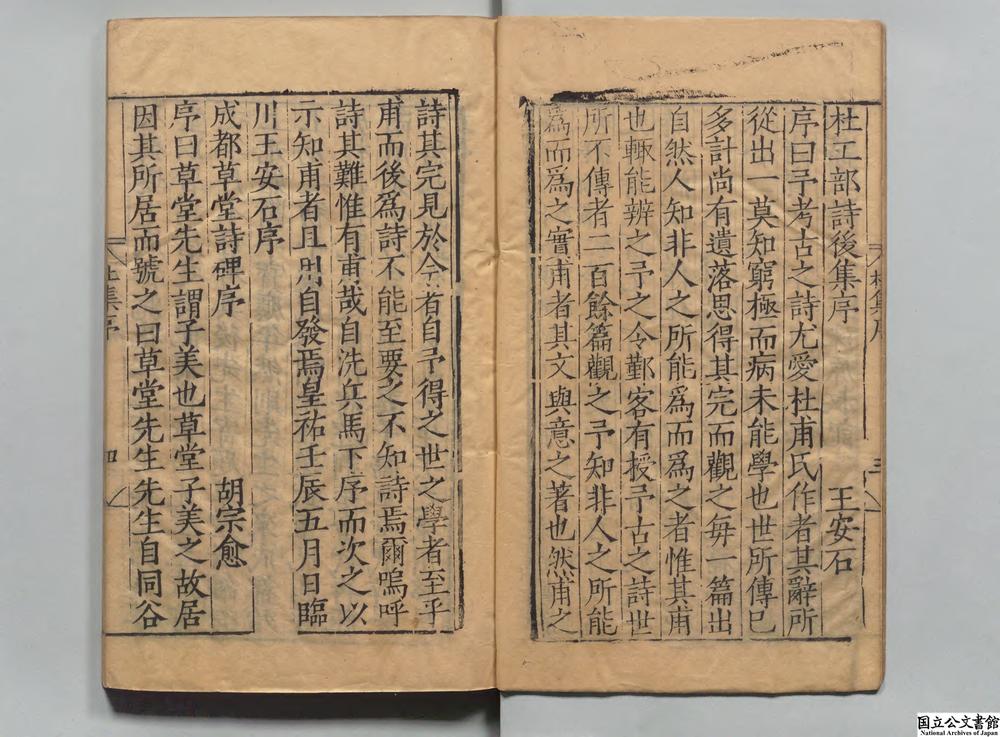 杜工部詩後集序　王安石
序曰予考古之詩尤愛杜甫氏作者其辭所
從出一莫知窮極而病未能學也世所傳已
多計尚有遺落思得其完而觀之每一篇出
自然人知非人之所能為而為之者惟其甫
也輒能辨之予之令鄞客有授予古之詩世
所不傳者二百餘篇觀之予知非人之所能
為而為之實甫者其文與意之著也然甫之
詩其完見於今者自予得之世之學者至乎
甫而後為詩不能至要之不知詩焉爾嗚呼
詩其難惟有甫哉自洗兵馬下序而次之以
示知甫者且用自發焉皇祐壬辰五月日臨
川王安石序
成都草堂詩碑序　胡宗愈
序曰草堂先生謂子美也草堂子美之故居
因其所居而號之曰草堂先生先生自同谷
杜集序
三
杜集序
四
国立公文書館
National Archives of Japan